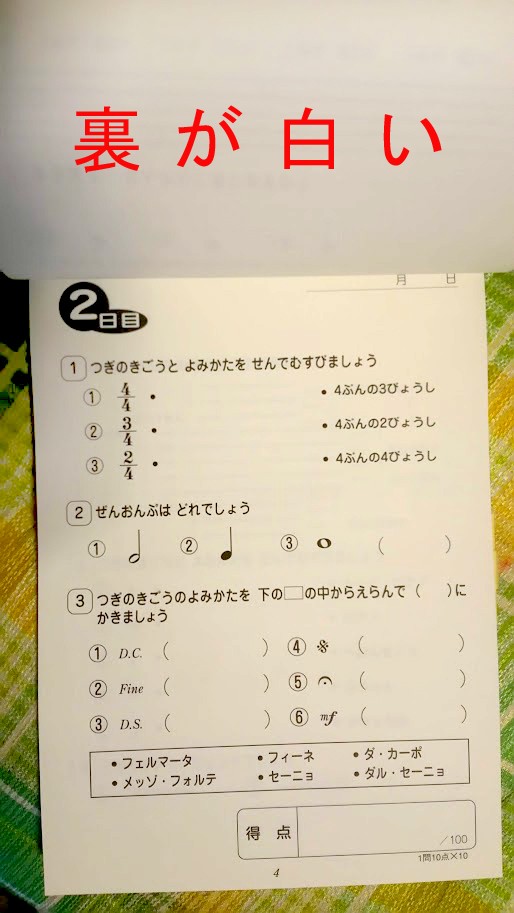 裏が白い
月 日
2日目
1 つぎのきごうと よみかたを せんでむすびましょう
① 4/4 • • 4ぶんの3びょうし
② 3/4 • • 4ぶんの2びょうし
③ 2/4 • • 4ぶんの4びょうし
2 ぜんおんぷは どれでしょう
① ② ③ ( )
3 つぎのきごうのよみかたを 下の□の中からえらんで ( )に
かきましょう
① D.C. ( ) ④ ( )
② Fine ( ) ⑤ ( )
③ D.S. ( ) ⑥ mf ( )
• フェルマータ • フィーネ • ダ・カーポ
• メッゾ・フォルテ • セーニョ • ダル・セーニョ
得点 /100
1問10点×10
4